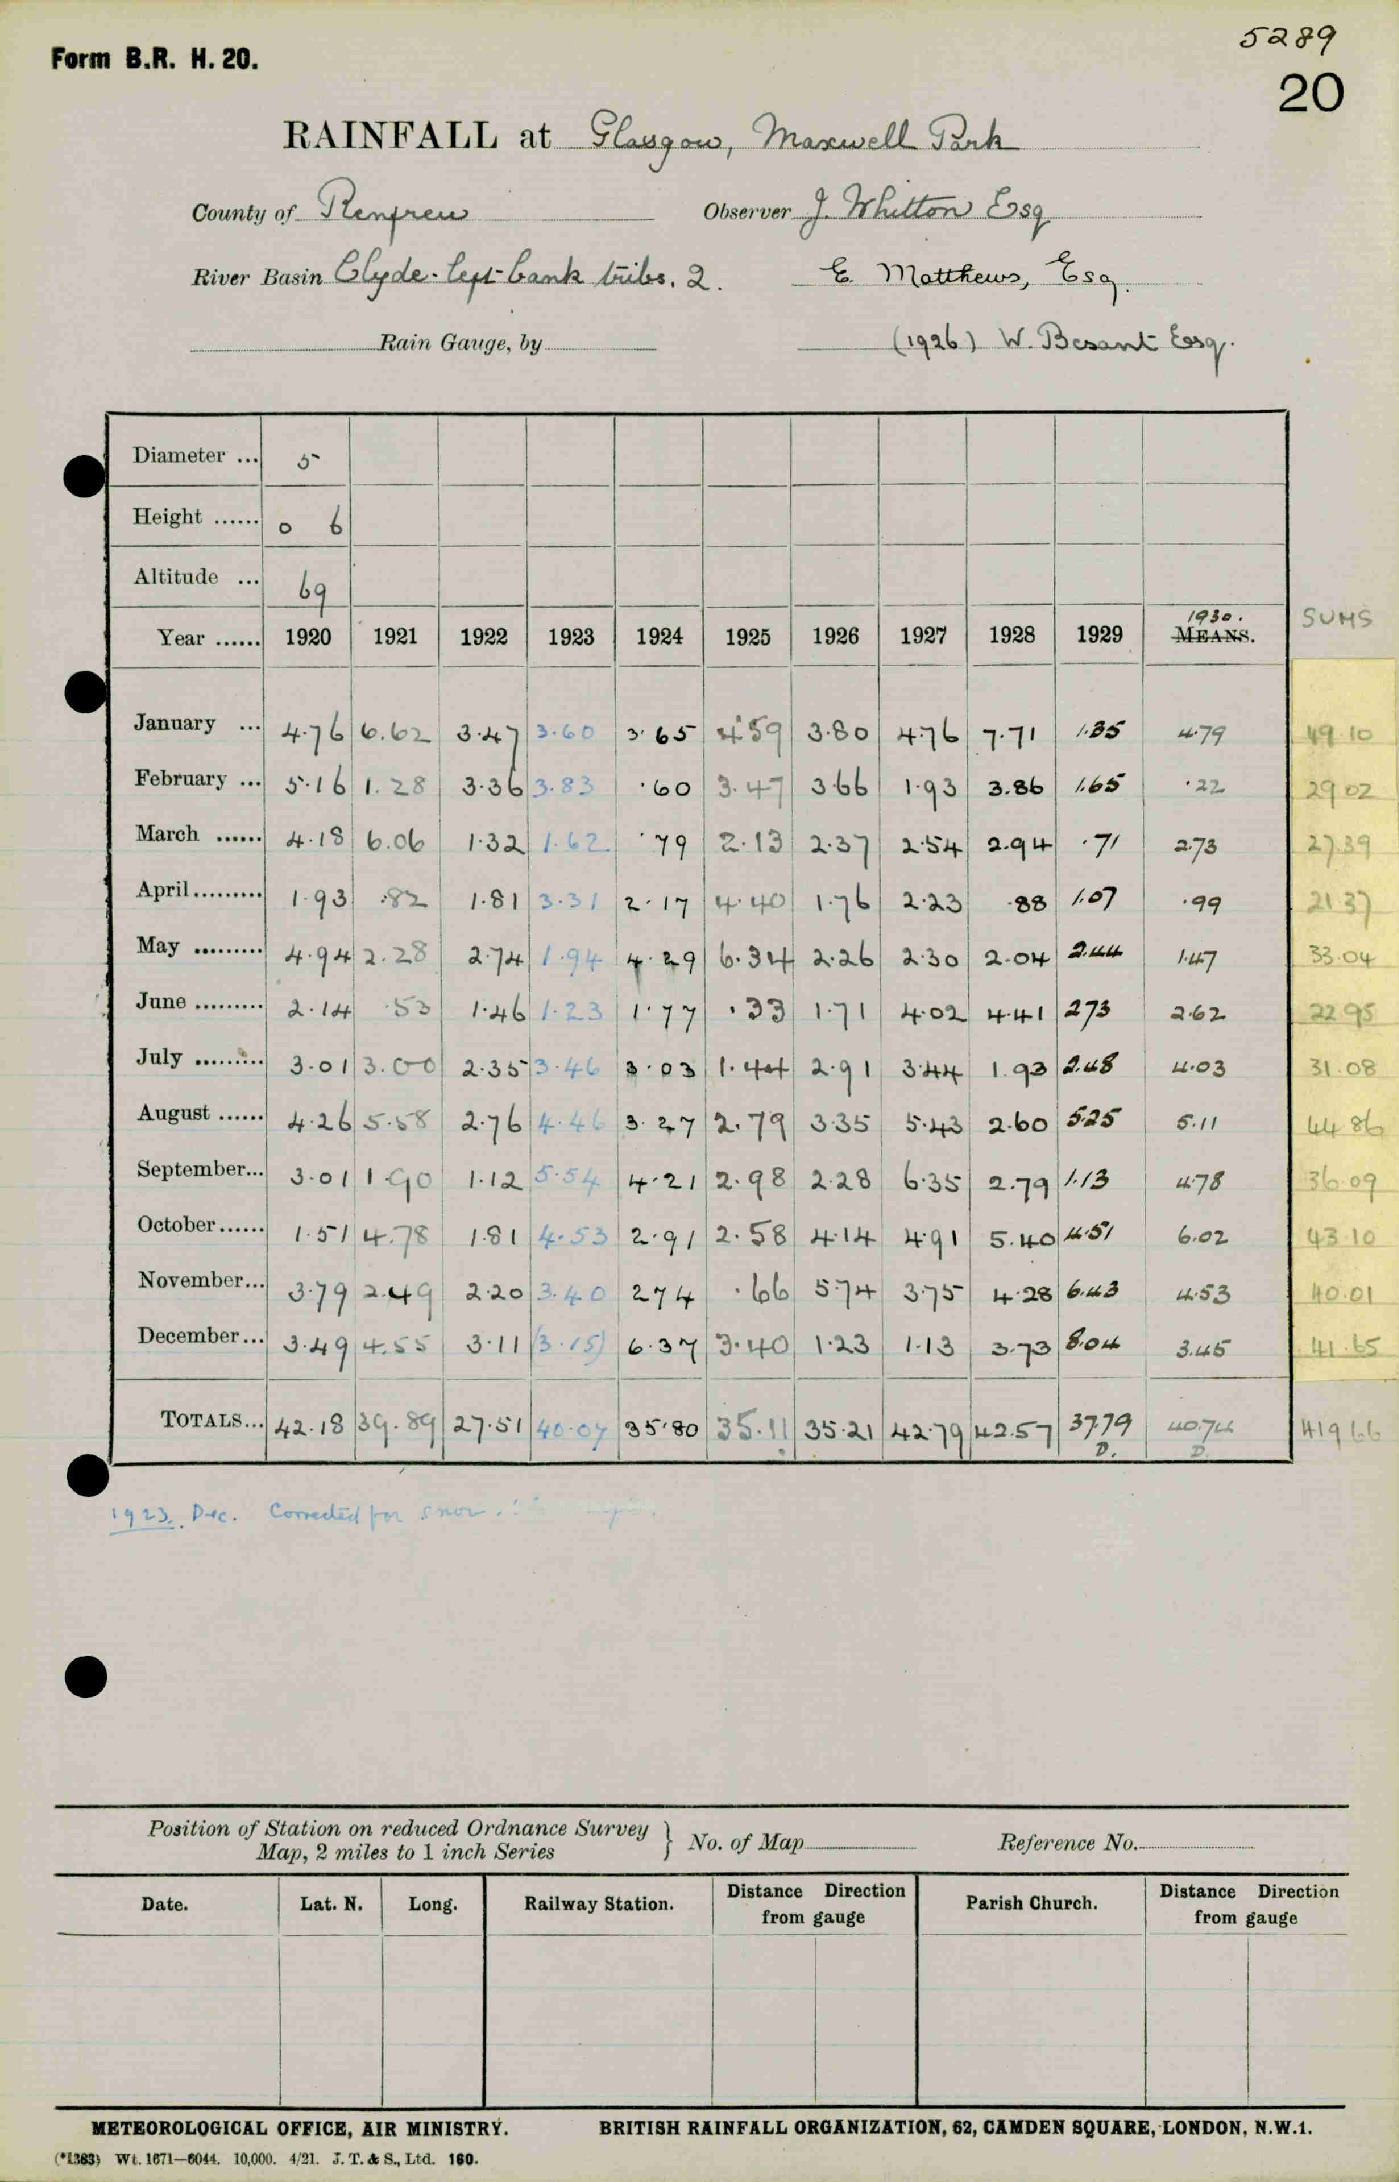 5289
Form B.R. H. 20.
20
RAINFALL at Glasgow, Maxwell Park
County of Renfrew Observer J. Whitton Esq
River Basin Clyde-left bank tribs. 2. E Matthews, Esq.
Rain Gauge, by (1926) W. Besant Esq.
Diameter ... 5
Height ...... 0 6
Altitude ... 69
1930. SUMS
Year ...... 1920 1921 1922 1923 1924 1925 1926 1927 1928 1929 MEANS.
January ... 4.76 6.62 3.47 3.60 3.65 4.59 3.80 4.76 7.71 1.35 4.79 49.10
February ... 5.16 1.28 3.36 3.83 .60 3.47 3.66 1.93 3.86 1.65 .22 29.02
March ...... 4.18 6.06 1.32 1.62 .79 2.13 2.37 2.54 2.94 .71 2.73 27.39
April......... 1.93 .82 1.81 3.31 2.17 4.40 1.76 2.23 .88 1.07 .99 21.37
May ......... 4.94 2.28 2.74 1.94 4.29 6.34 2.26 2.30 2.04 2.44 1.47 33.04
June ......... 2.14 .53 1.46 1.23 1.77 .33 1.71 4.02 4.41 2.73 2.62 22.95
July ......... 3.01 3.00 2.35 3.46 3.03 1.44 2.91 3.44 1.93 2.48 4.03 31.08
August ...... 4.26 5.58 2.76 4.46 3.27 2.79 3.35 5.43 2.60 5.25 5.11 44.86
September... 3.01 1.90 1.12 5.54 4.21 2.98 2.28 6.35 2.79 1.13 4.78 36.09
October...... 1.51 4.78 1.81 4.53 2.91 2.58 4.14 4.91 5.40 4.51 6.02 43.10
November... 3.79 2.49 2.20 3.40 2.74 .66 5.74 3.75 4.28 6.43 4.53 40.01
December... 3.49 4.55 3.11 (3.15) 6.37 3.40 1.23 1.13 3.73 8.04 3.45 41.65
TOTALS... 42.18 39.89 27.51 40.07 35.80 35.11 35.21 42.79 42.57 37.79 40.74 419.66
D. D.
1923. Dec. Corrected for snow.
Position of Station on reduced Ordnance Survey
Map, 2 miles to 1 inch Series } No. of Map Reference No.
Date. Lat. N. Long. Railway Station. Distance Direction from gauge Parish Church. Distance Direction from gauge
METEOROLOGICAL OFFICE, AIR MINISTRY. BRITISH RAINFALL ORGANIZATION, 62, CAMDEN SQUARE, LONDON, N.W.1.
(*1383) Wt. 1671—6044. 10,000. 4/21. J. T. & S., Ltd. 160.